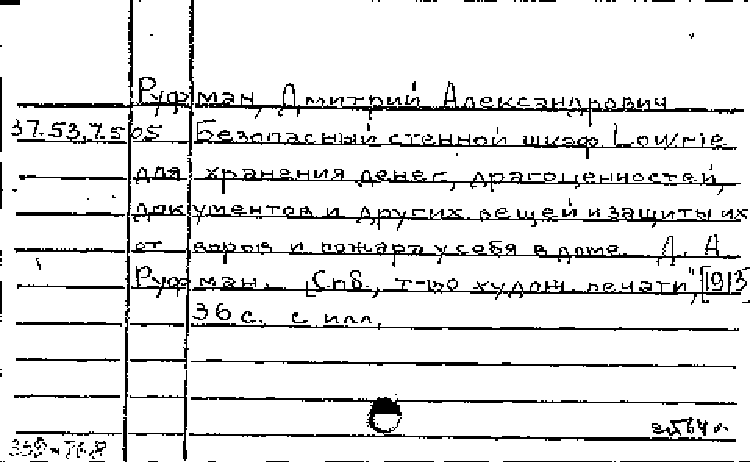 Руфман, Дмитрий Александрович
37.53.7.5.05 Безопасный стенной шкаф Lowrie
для хранения денег, драгоценностей,
документов и других вещей и защиты их
от воров и пожара у себя в доме. Д. А.
Руфман. [Спб., т-во худож. печати", [1913]
36 с. с илл.